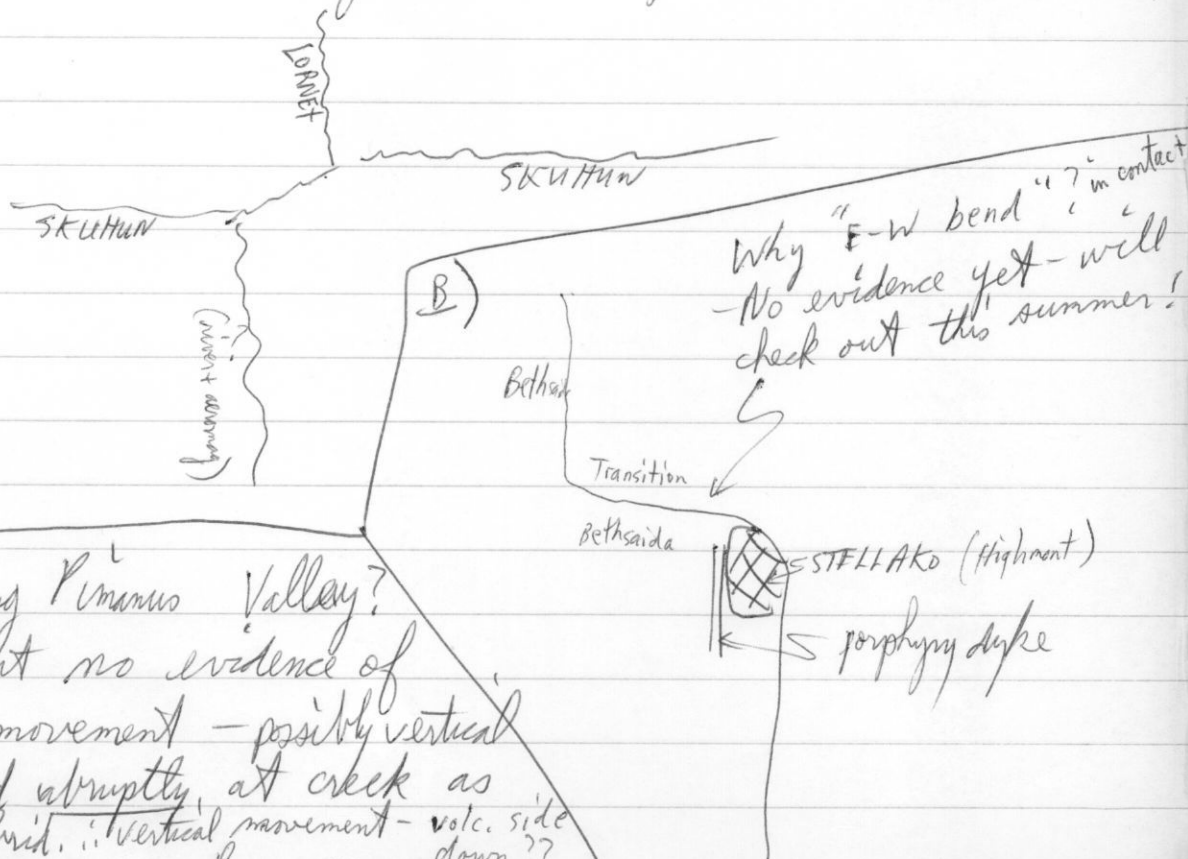 LORNEX
SKUHUN
SKUHUN
B)
Why "E-W bend"? in contact
- No evidence yet - will
check out this summer!
Bethsai
Transition
Bethsaida
STELLAKO (Highmont)
porphyry dyke
Pimanus Valley?
no evidence of
movement - possibly vertical
abruptly, at creek as
∴ vertical movement - volc. side
down??